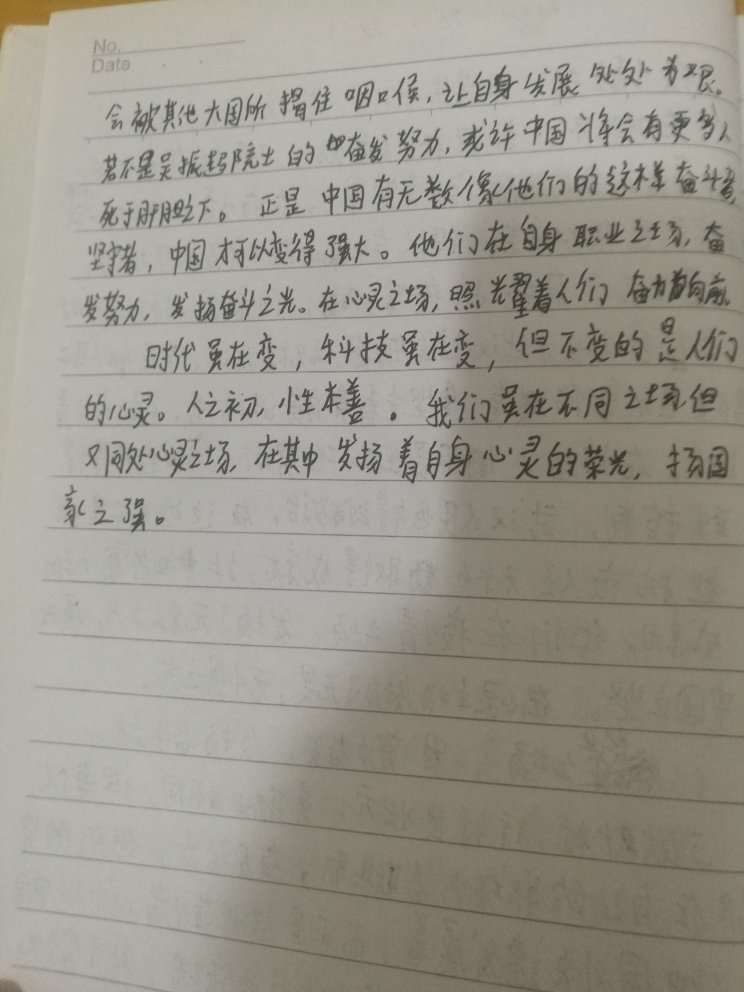 No.
Date
会被其他大国所掐住咽口侯,让自身发展处处为艰。
若不是吴振起院士的奋发努力,或许中国将会有更多人
死于肝胆之下。正是中国有无数像他们的这样奋斗者,
坚守者,中国才可以变得强大。他们在自身职业之场,奋
发努力,发扬奋斗之光。在心灵之场,照耀着人们奋力向前。
时代虽在变,科技虽在变,但不变的是人们
的心灵。人之初,性本善。我们虽在不同之场但
又同处心灵之场,在其中发扬着自身心灵的荣光,扬国
家之强。